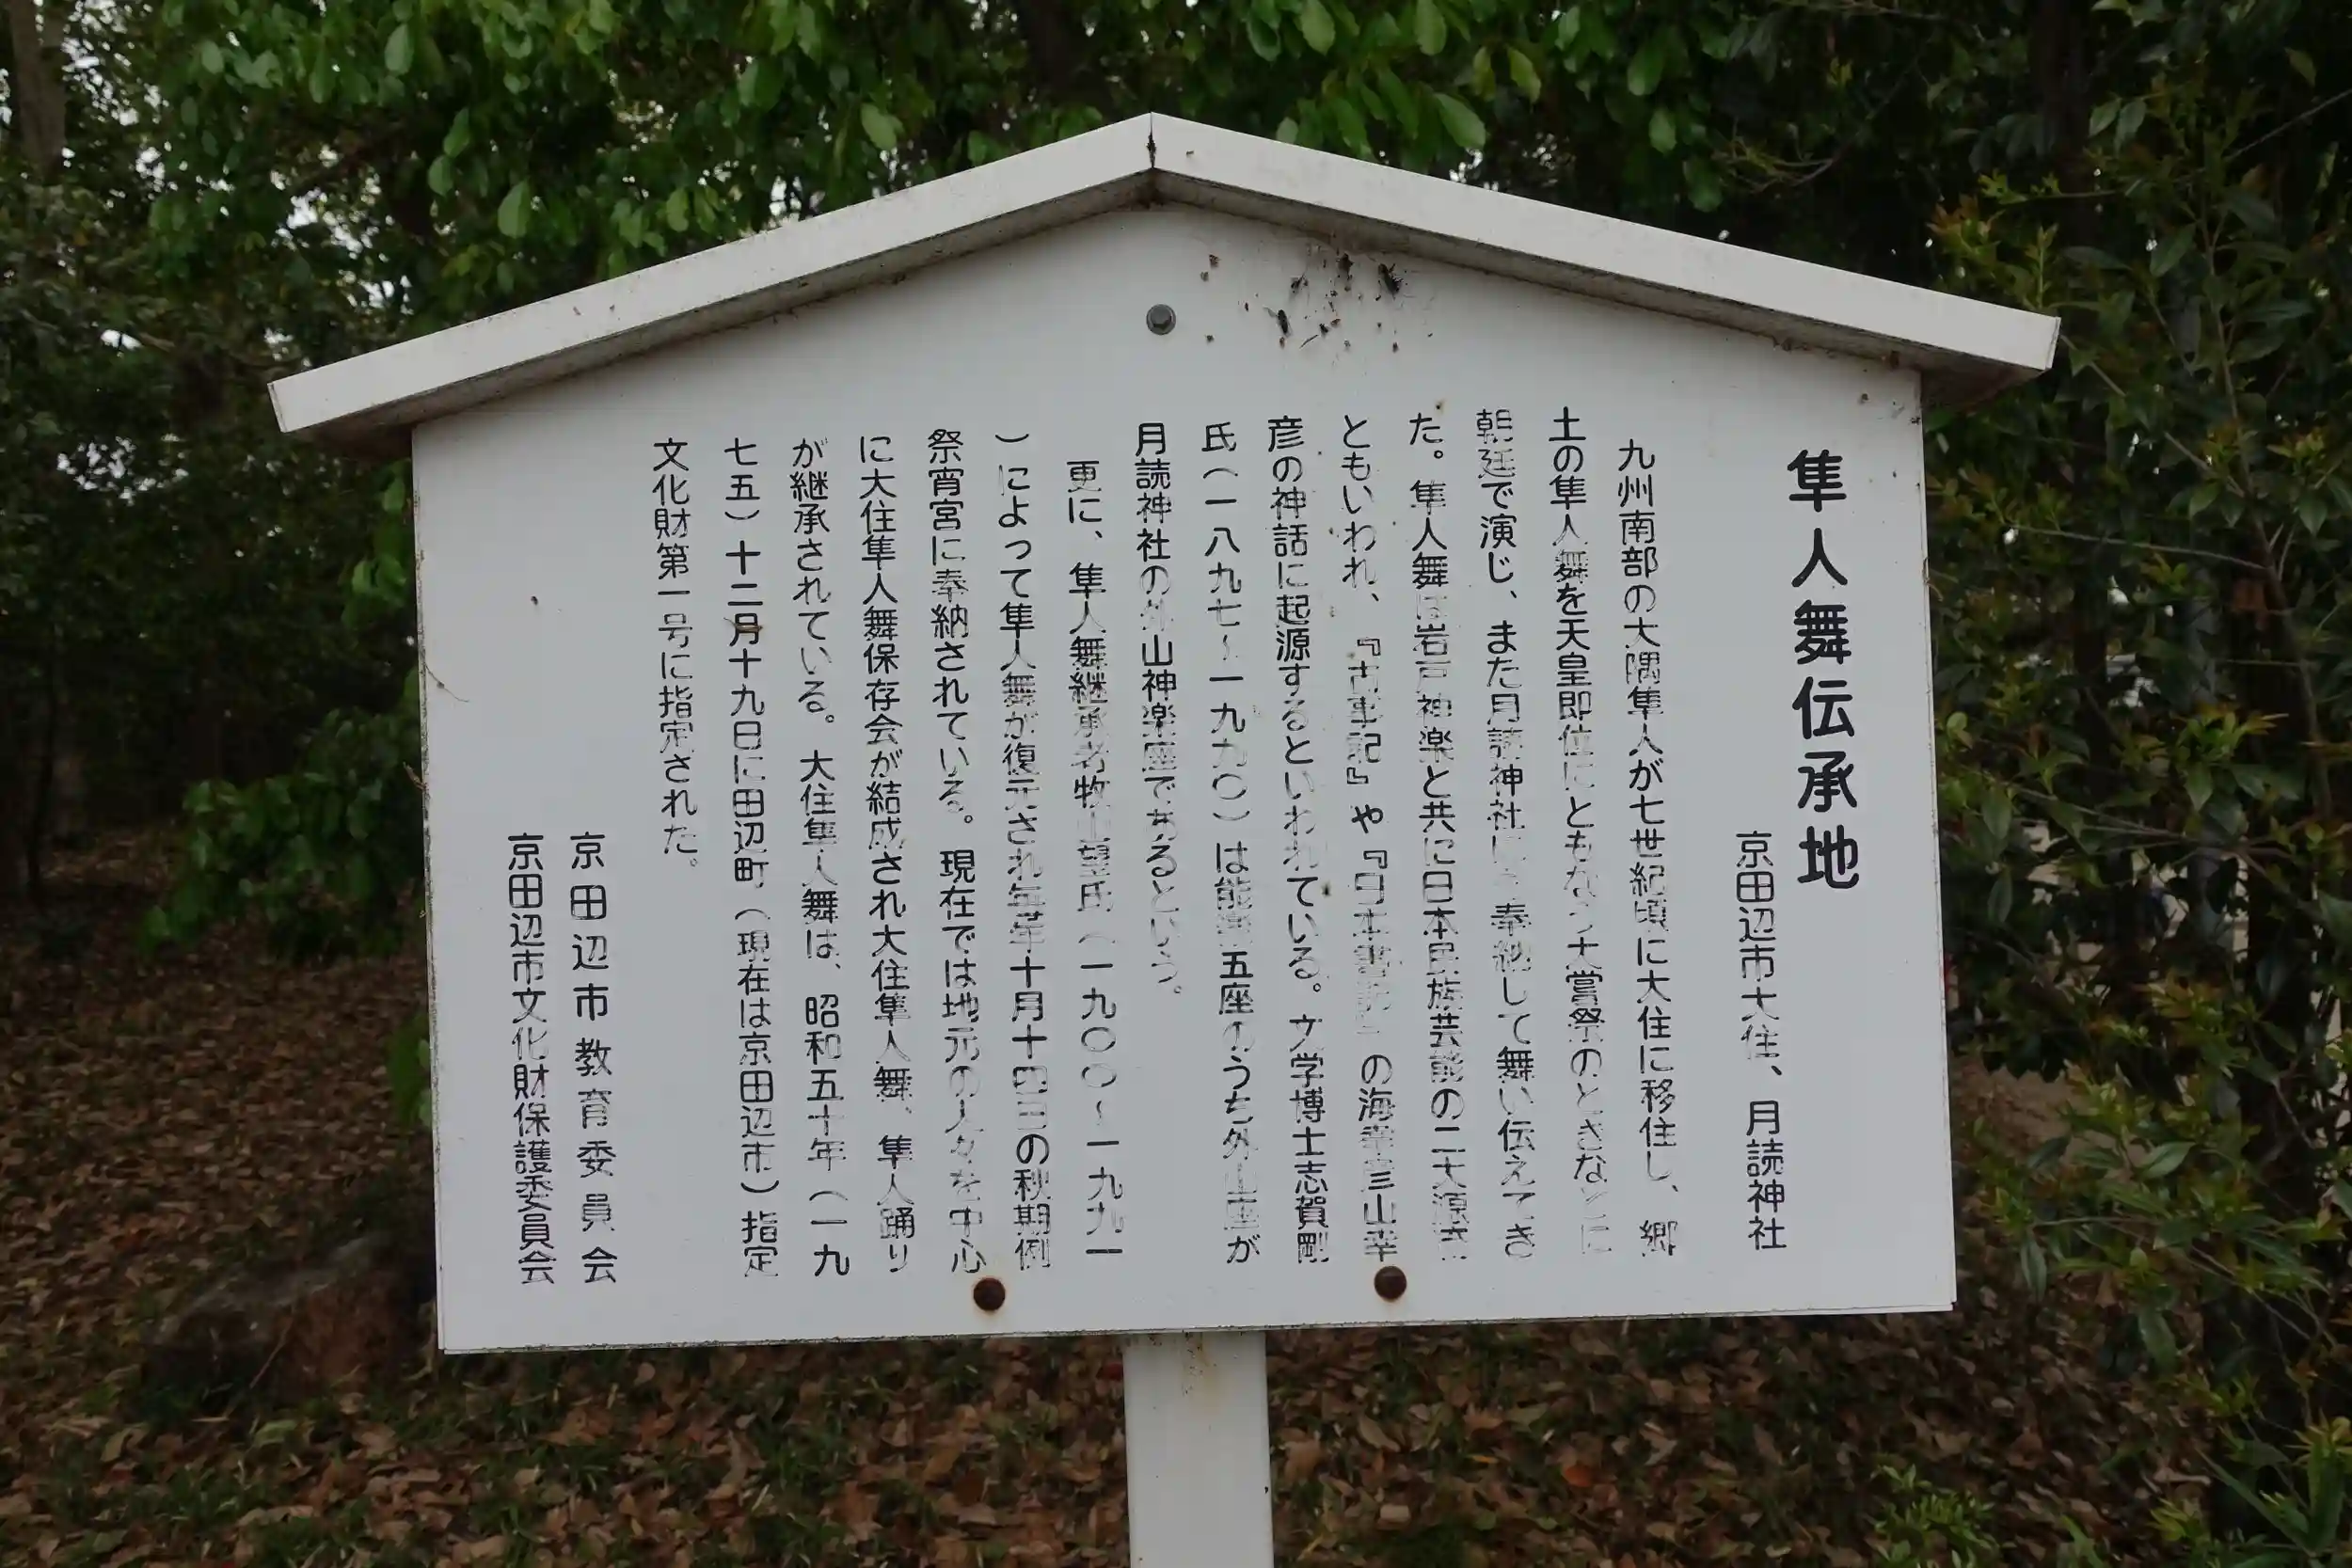 隼人舞伝承地
京田辺市大住、月読神社
九州南部の大隅隼人が七世紀頃に大住に移住し、郷
土の隼人舞を天皇即位にともなう大嘗祭のときなどに
朝廷で演じ、また月読神社にも奉納して舞い伝えてき
た。隼人舞は岩戸神楽と共に日本民族芸能の二大源流
ともいわれ、『古事記』や『日本書紀』の海幸彦山幸
彦の神話に起源するといわれている。文学博士志賀剛
氏(一八九七〜一九九〇)は能楽五座のうち外山座が
月読神社の外山神楽座であるという。
更に、隼人舞継承者牧山望氏(一九〇〇〜一九九一
)によって隼人舞が復元され毎年十月十四日の秋期例
祭宵宮に奉納されている。現在では地元の人々を中心
に大住隼人舞保存会が結成され大住隼人舞、隼人踊り
が継承されている。大住隼人舞は、昭和五十年(一九
七五)十二月十九日に田辺町(現在は京田辺市)指定
文化財第一号に指定された。
京田辺市教育委員会
京田辺市文化財保護委員会